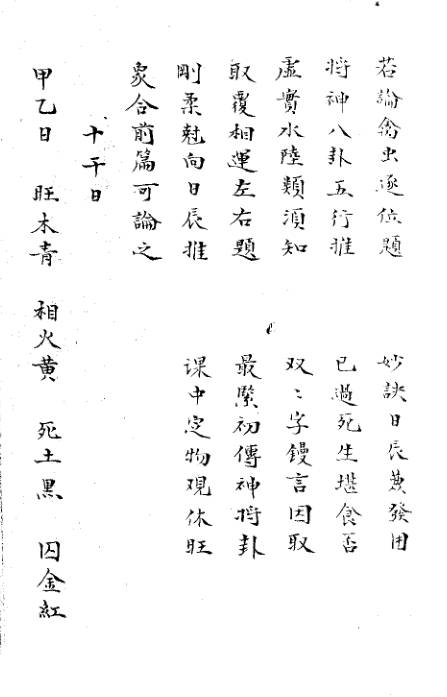 若論禽虫逐位題　妙訣日辰兼發用
将神八卦五行推　已過死生堪食否
虛實水陸類須知　双〻字鏝言因取
取覆相運左右題　最緊初傳神将卦
剛柔尅向日辰推　课中定物观休旺
象合前篇可論之
十干日
甲乙日　旺木青　相火黄　死土黑　囚金紅